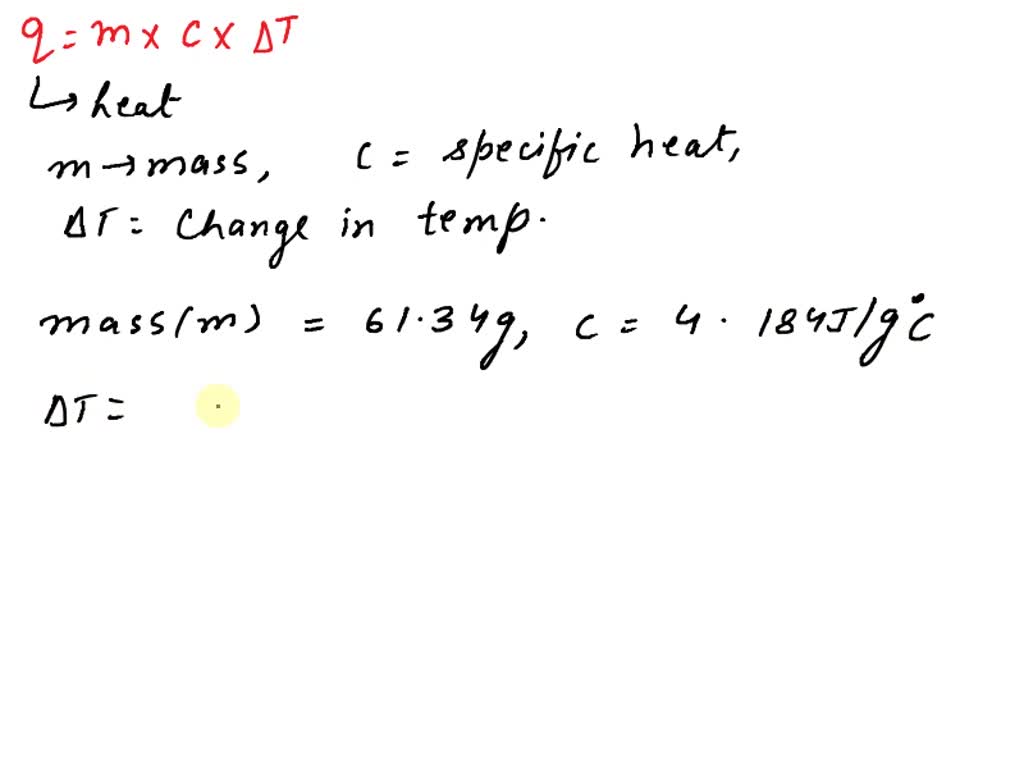 q = m x c x ΔT
↳ heat
m → mass, c = specific heat,
ΔT = Change in temp.
mass (m) = 61.34g, c = 4.184J/g°C
ΔT =